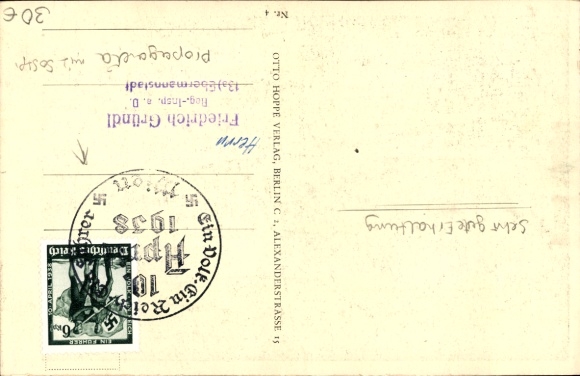 Nr. 4
OTTO HOPPE VERLAG, BERLIN C 2, ALEXANDERSTRASSE 15
Herrn
Friedrich Gründl
Reg.-Insp. a. D.
(13a) Ebermannstadt
Propaganda mit Sosst.
30€
Sehr gute Erhaltung
Wien
Ein Volk. Ein Rei
hrer
10
Apr
1938
Deutsches Reich
EIN VOLK EIN REICH
10. APRIL 1938
EIN FÜHRER
6 Rpf